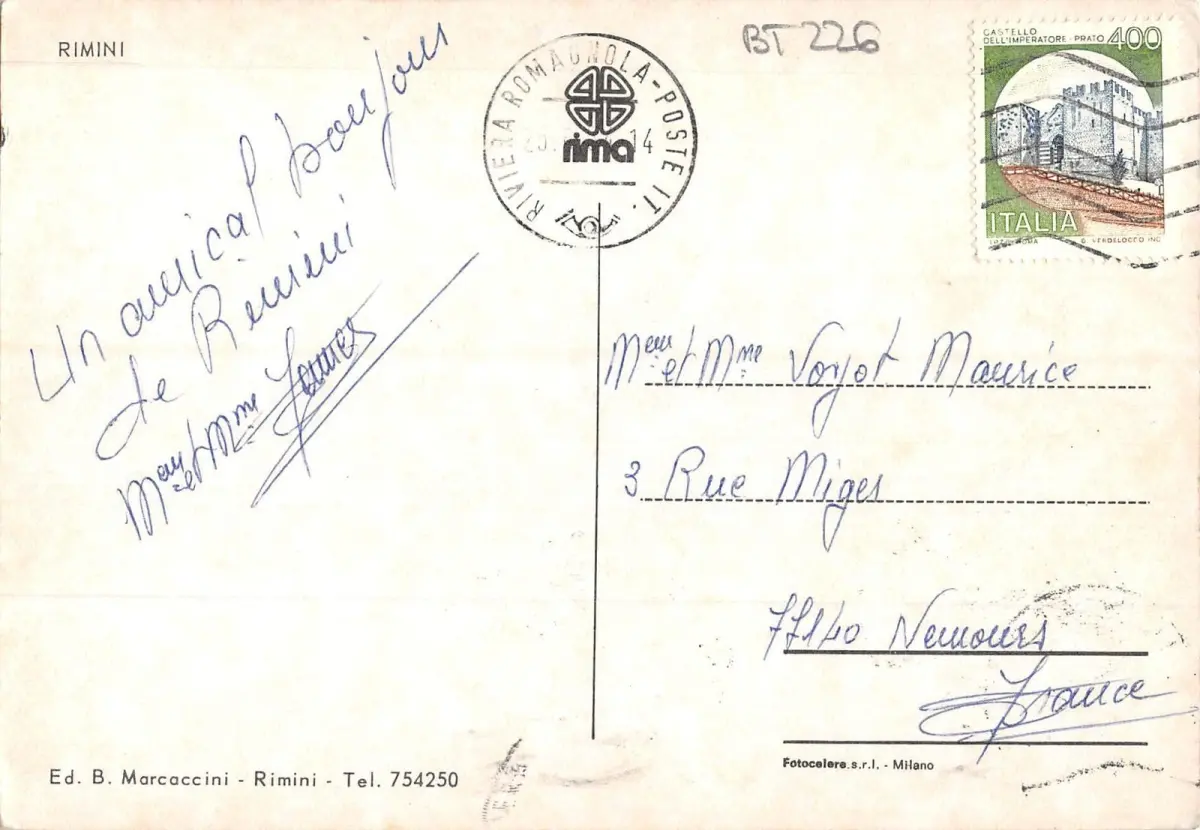 RIMINI
BT 226
RIVIERA ROMAGNOLA - POSTE IT.
rima
14
CASTELLO
DELL'IMPERATORE - PRATO 400
ITALIA
ROMA
Un amical bonjour
de Rimini
M et Mme
M et Mme Voyot Maurice
3 Rue Miges
77140 Nemours
France
Ed. B. Marcaccini - Rimini - Tel. 754250
Fotocelere s.r.l. - Milano